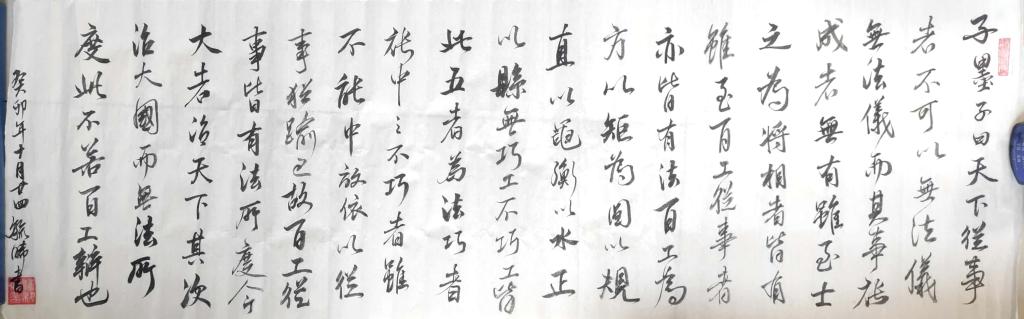 子墨子曰天下從事
者不可以無法儀
無法儀而其事能
成者無有雖至士
之為將相者皆有
雖至百工從事者
亦皆有法百工為
方以矩為圓以規
直以繩衡以水正
以縣無巧工不巧工皆
此五者為法巧者
能中之不巧者雖
不能中放依以從
事猶踰已故百工從
事皆有法所度今
大者治天下其次
治大國而無法所
度此不若百工辯也
癸卯年十月廿四書